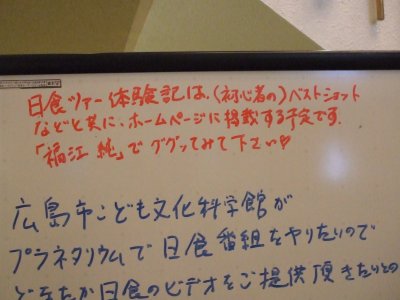 日食ツアー体験記は、(初心者の)ベストショット
などと共に、ホームページに掲載する予定です。
「福江 純」でググッてみて下さい♡
広島市こども文化科学館が
プラネタリウムで日食番組をやりたいので
どなたか日食のビデオをご提供頂きたいとの